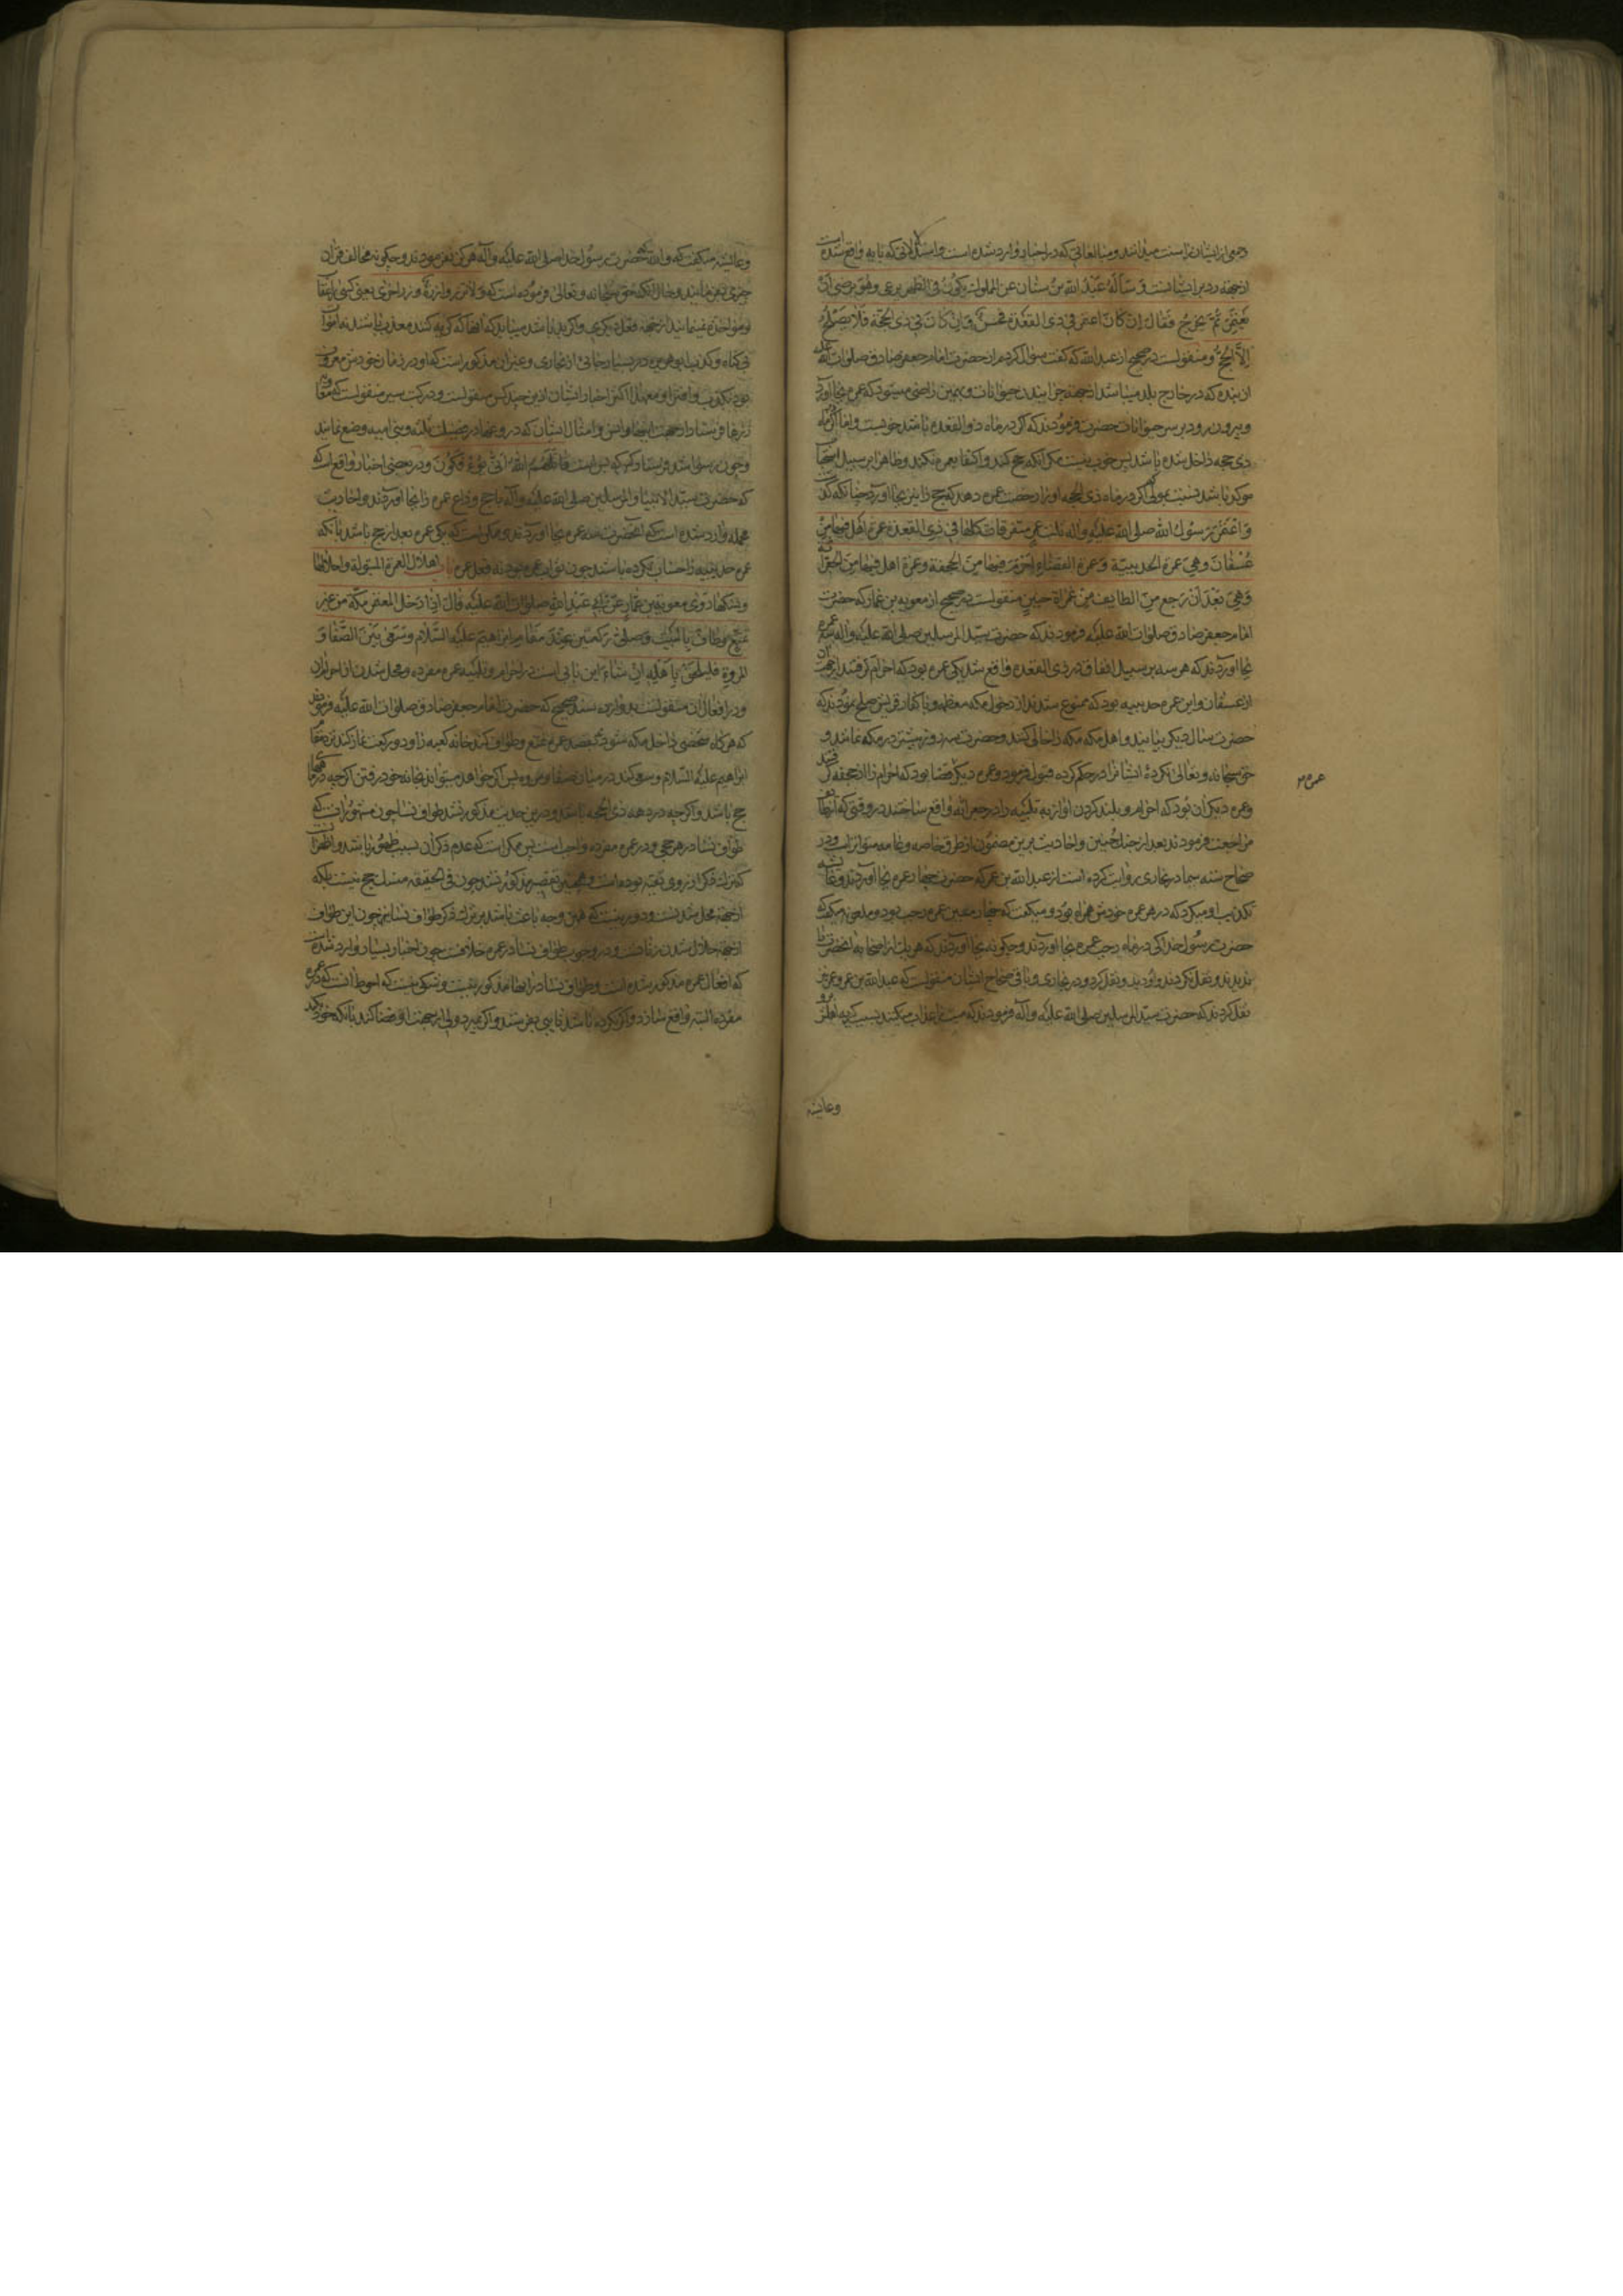 جمعی از ایشان سنت میدانند ومبالغاتی که در اخبار وارد شده است واستدلالاتی که بآیه واقع شده است
از جهة رد بر ایشانست وَسَأَلَهُ عَبْدُ اللهِ بنُ سنان عن المملوك يكونُ في الظهر يرعى وهو يرضى أن
يعتمر ثُمَّ يخرجُ فقال إن كان اعتمر في ذي القعدة فحسنٌ وإن كان في ذي الحجة فلا يصلح
إلا الحج ومنقولست در صحیح از عبد الله که گفت سؤال کردم از حضرت امام جعفر صادق صلوات الله علیه
از بنده که در خارج بلد میباشد از جهة چرانیدن حیوانات وبهمین راضی میشود که عمره بجا آورد
وبیرون رود بر سر حیوانات حضرت فرمودند که اگر در ماه ذو القعده باشد خوبست واما اگر ماه
ذی حجه داخل شده باشد پس خوب نیست مگر آنکه حج کند واکتفا بعمره نکند وظاهرا بر سبیل استحبا
موکد باشد نسبت بمولی که اگر در ماه ذی الحجه او را رخصت عمره دهد که حج را نیز بجا آورد چنانکه گذ
وَاعْتَمَرَ رَسولُ الله صلى الله عليه وآله ثلث عمر متفرقات كلها في ذي القعدة عمرة أهل فيها من
عُسْفَانَ وهي عمرة الحديبية وعمرة القضاء أحرم فيها من الجحفة وعمرة أهل فيها من الجعرانة
وَهِيَ بَعْدَ أن رجع من الطايف من غزاة حنين منقولست در صحیح از معویه بن عمار که حضرت
امام جعفر صادق صلوات الله علیه فرمودند که حضرت سید المرسلین صلی الله علیه وآله سه عمره
بجا آوردند که هر سه بر سبیل اتفاق در ذی القعده واقع شد یکی عمره بود که احرام گرفتند از جهت آن
از عسفان واین عمره حدیبیه بود که ممنوع شدند از دخول مکه معظمه وبا کفار قریش صلح نمودند که
حضرت سال دیگر بیایند واهل مکه مکه را خالی کنند وحضرت سه روز بیشتر در مکه نمانند و
حق سبحانه وتعالی نکرده ایشانرا در حکم کرده قبول فرمود وعمره دیگر قضا بود که احرام را از جحفه گرفتند
وعمره دیگر آن بود که احرام وبلند کردن آواز به تلبیه را در جعرانه واقع ساختند در وقتی که از طایف
مراجعت فرمودند بعد از جنك حُنین واحادیث برین مضمون از طرق خاصه وعامه متواتر است ودر
صحاح سته سیما در بخاری روایت کرده است از عبد الله بن عمر که حضرت چهار عمره بجا آوردند وعایشه
تکذیب او میکرد که در هر عمره خودش همراه بود ومیگفت که چهارمین عمره رجب بود وملعی میگفت که
حضرت رسول خدا کی در ماه رجب عمره بجا آوردند وچگونه بجا آوردند که هیچ یك از اصحاب آنحضرت با
ندیدند ونقل نکردند واو دید ونقل کرد ودر بخاری وباقی صحاح ایشان منقولست که عبدالله بن عمر وعمر
نقل کردند که حضرت سید المرسلین صلی الله علیه وآله فرمودند که میت را عذاب میکنند بسبب گریه اهلش برو
وعایشه
عمره ۳
وعایشه میگفت که والله که حضرت رسول خدا صلی الله علیه وآله هرگز نفرمودند وچگونه مخالف قرآن
چیزی بفرمایند وحال آنکه حق سبحانه وتعالی فرموده است که وَلاتزر وازرةٌ وزر اخری یعنی کسی را
ومؤاخذه نمینمایند از جهة فعل دیگری واگر بد باشد میباید که آنها که گریه کنند معذب باشند نه اموات
بی گناه وتکذیب ابو هریره در بسیار جائی از بخاری وغیر آن مذکور است که او در زمان خودش معروف
بود بکذب وافترا ومعهذا اکثر اخبار ایشان ازین چند کس منقولست ودر کتب سیر منقولست که معویه
زرها فرستاد از جهت اینها وانس وامثال ایشان که دروغها در فضیلت ثلثه وبنی امیه وضع نمایند
وچون بسیار شد فرستاد که دیگر بس است قاتلهم الله أنى يؤفكون ودر بعضی اخبار واقع است که
که حضرت سید الانبیا والمرسلین صلی الله علیه وآله با حج وداع عمره را بجا آوردند واحادیث
مجمله وارد شده است که آنحضرت سه عمره بجا آوردند وممکن است که یکی عمره بعد از حج باشد با آنکه
عمره حدیبیه را حساب نکرده باشند چون ثواب عمره بود نه فعل عمره باب إهلال العمرة المبتولة وإحلالها
ونسكها روى معوية بن عمار عن أبي عبد الله صلوات الله عليه قال إذا دخل المعتمر مكة من غير
تمتع وطاف بالبيت وصلى ركعتين عند مقام إبراهيم عليه السلام وسعى بين الصفا و
المروة فليلحق بأهله إن شاء این بابی است در احرام وتلبیه عمره مفرده ومحل شدن از احرام آن
ودر افعال آن منقولست بدوازده سند صحیح که حضرت امام جعفر صادق صلوات الله علیه فرمودند
که هرگاه شخصی داخل مکه شود نه بقصد عمره تمتع وطواف کند خانه کعبه را ودو رکعت نماز کند نزد مقام
ابراهیم علیه السلام وسعی کند در میان صفا ومروه پس اگر خواهد میتواند بخانه خود رفتن اگرچه در ماههای
حج باشد واگرچه در دهه ذی الحجه باشد ودرین حدیث مذکور نشد طواف نسا چون مشهور آنست که
طواف نسا در هر حجی ودر عمره مفرده واجب است پس ممکن است که عدم ذکر آن بسبب ظهور باشد واظهر آنست
که ترك ذکر از روی تقیه بوده است وهمچنین تقصیر مذکور نشد چون فی الحقیقه منسك حج نیست بلکه
از جهة محل شدنست ودور نیست که همین وجه باعث باشد بر ترك ذکر طواف نسا نیز چون این طواف
از جهة حلال شدن زنانست ودر وجوب طواف نسا در عمره خلافست چون اخبار بسیار وارد شده است
که افعال عمره مذکور شده است وطواف نسا در آنها مذکور نیست وشکی نیست که احوط آنست که در عمره
مفرده البته واقع سازد واگر نکرده باشد نایبی بفرستد واگر بمیرد ولی از جهت او قضا کند یا آنکه خود